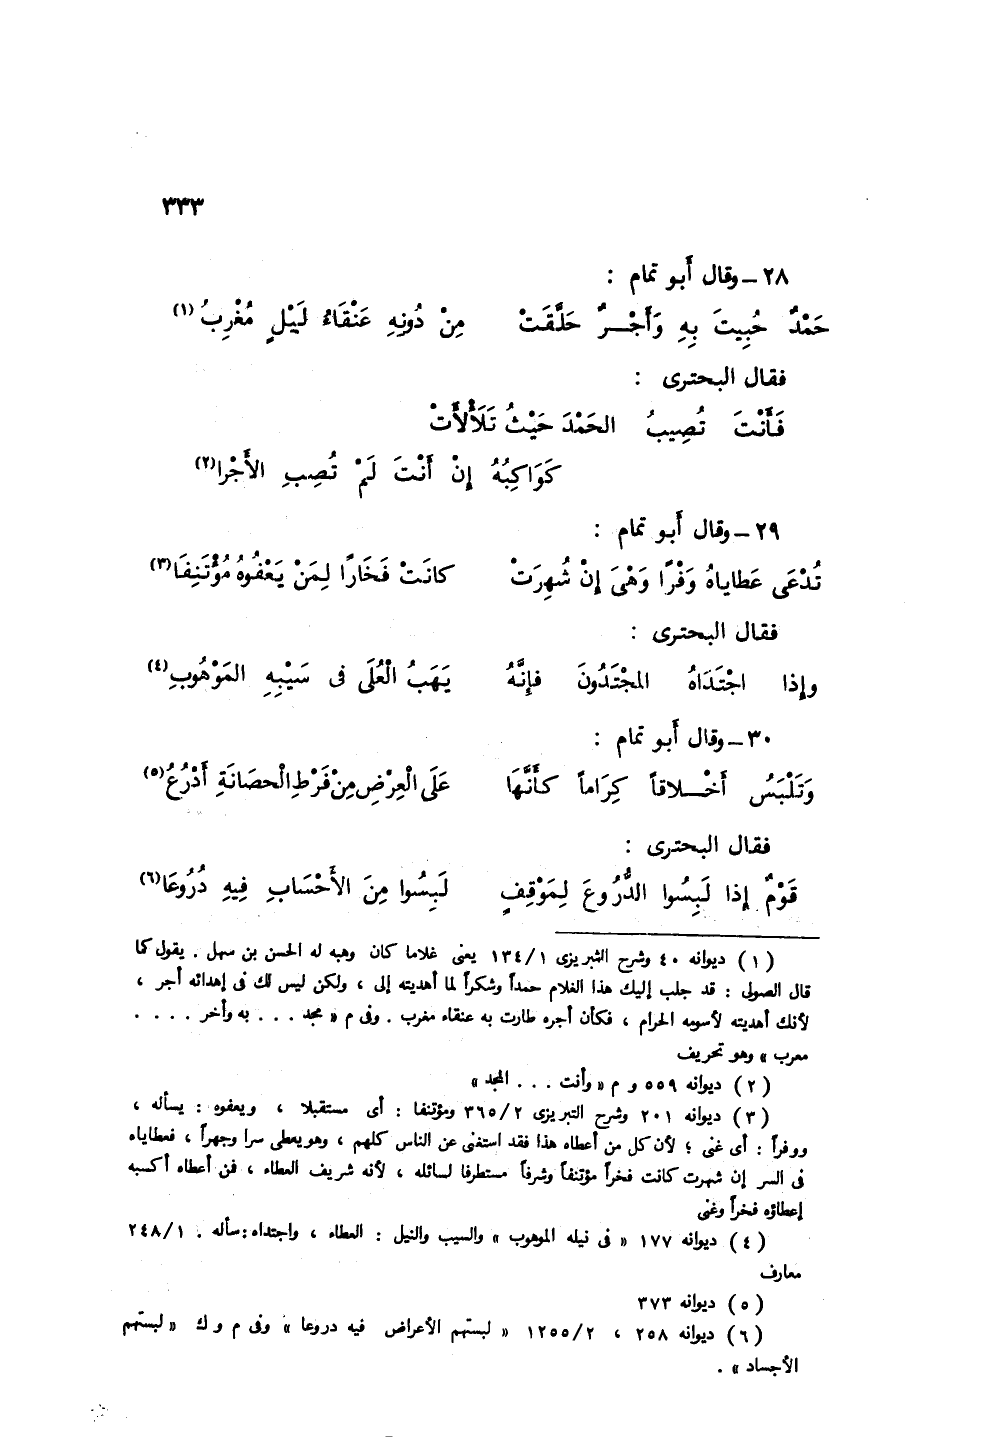 ٣٣٣
٢٨ – وقال أبو تمام :
حَمْدٌ حُبِيتَ بِهِ وَأَجْرٌ حَلَّقَتْ مِنْ دُونِهِ عَنْقَاءُ لَيْلٍ مُغْرِبُ (١)
فقال البحترى :
فَأَنْتَ تُصِيبُ الحَمْدَ حَيْثُ تَلَأْلَأَتْ
كَوَاكِبُهُ إِنْ أَنْتَ لَمْ تُصِبِ الأَجْرا (٢)
٢٩ – وقال أبو تمام :
تُدْعَى عَطاياهُ وَفْرًا وَهْىَ إِنْ شُهِرَتْ كانَتْ فَخَارًا لِمَنْ يَعْفُوهُ مُؤْتَنِفَا (٣)
فقال البحترى :
وإِذا اجْتَدَاهُ المجْتَدُونَ فإِنَّهُ يَهَبُ الْعُلَى فى سَيْبِهِ المَوْهُوبِ (٤)
٣٠ – وقال أبو تمام :
وَتَلْبَسُ أَخْلاقاً كِرَاماً كأَنَّهَا عَلَى الْعِرْضِ مِنْ فَرْطِ الْحصَانَةِ أَدْرُعُ (٥)
فقال البحترى :
قَوْمٌ إِذا لَبِسُوا الدُّرُوعَ لِمَوْقِفٍ لَبِسُوا مِنَ الأَحْسَابِ فِيهِ دُرُوعَا (٦)
(١) ديوانه ٤٠ وشرح التبريزى ١٣٤/١ يعنى غلاما كان وهبه له الحسن بن سهل . يقول كما
قال الصولى : قد جلب إليك هذا الغلام حمداً وشكراً لما أهديته إلى ، ولكن ليس لك فى إهدائه أجر ،
لأنك أهديته لأسومه الحرام ، فكأن أجره طارت به عنقاء مغرب . وفى م « مجد ... به وأخر ....
معرب » وهو تحريف
(٢) ديوانه ٥٥٩ و م « وأنت ... المجد »
(٣) ديوانه ٢٠١ وشرح التبريزى ٣٦٥/٢ ومؤتنفا : أى مستقبلا ، ويعفوه : يسأله ،
ووفراً : أى غنى ؛ لأن كل من أعطاه هذا فقد استغنى عن الناس كلهم ، وهو يعطى سرا وجهراً ، فعطاياه
فى السر إن شهرت كانت فخراً مؤتنفاً وشرفاً مستطرفا لسائله ، لأنه شريف العطاء ، فمن أعطاه أكسبه
إعطاؤه فخراً وغنى
(٤) ديوانه ١٧٧ « فى نيله الموهوب » والسيب والنيل : العطاء ، واجتداه : سأله . ٢٤٨/١
معارف
(٥) ديوانه ٣٧٣
(٦) ديوانه ٢٥٨ ، ١٢٥٥/٢ « لبستهم الأعراض فيه دروعا » وفى م و ك « لبستهم
الأجساد » .